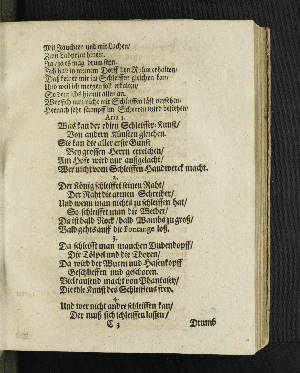 Mit Jauchtzen und mit Lachen/
Zum Ladritsch hinein.
Ja/ ja es mag drum seyn.
Ich hab in meinem Dorff den Ruhm erhalten/
Daß keiner mir im Schleiffen gleichen kan/
Und weil ich morgen soll erkalten/
So deut ichs hiemit allen an.
Wer sich nun nicht mit Schleiffen läst versehen/
Her nach sehr stumpff im Scheeren wird bestehen/
Aria 1.
Was kan der edlen Schleiffer-Kunst/
Von andern Künsten gleichen.
Sie kan die aller erste Gunst
Bey grossen Herrn erreichen/
Am Hofe wird nur außgelacht/
Wer nicht vom Schleiffen Handwerck macht.
2.
Der König schleiffet seinen Raht/
Der Raht die armen Schreiber/
Und wenn man nichts zu schleiffen hat/
So schleiffet man die Weiber/
Da ist bald Rock/ bald Wambs zu groß/
Bald gehts auff die Fontange loß.
3.
Da schleifft man manchen Dudendopff/
Die Tölpel und die Thoren/
Da wird der Wurm und Hasenkopff
Geschliffen und geschoren.
Viel tausend macht von Phantasey/
Die edle Kunst des Schleiffens frey.
4.
Und wer nicht ander schleiffen kan/
Der muß sich schleiffen lassen/
C 3 Drumb